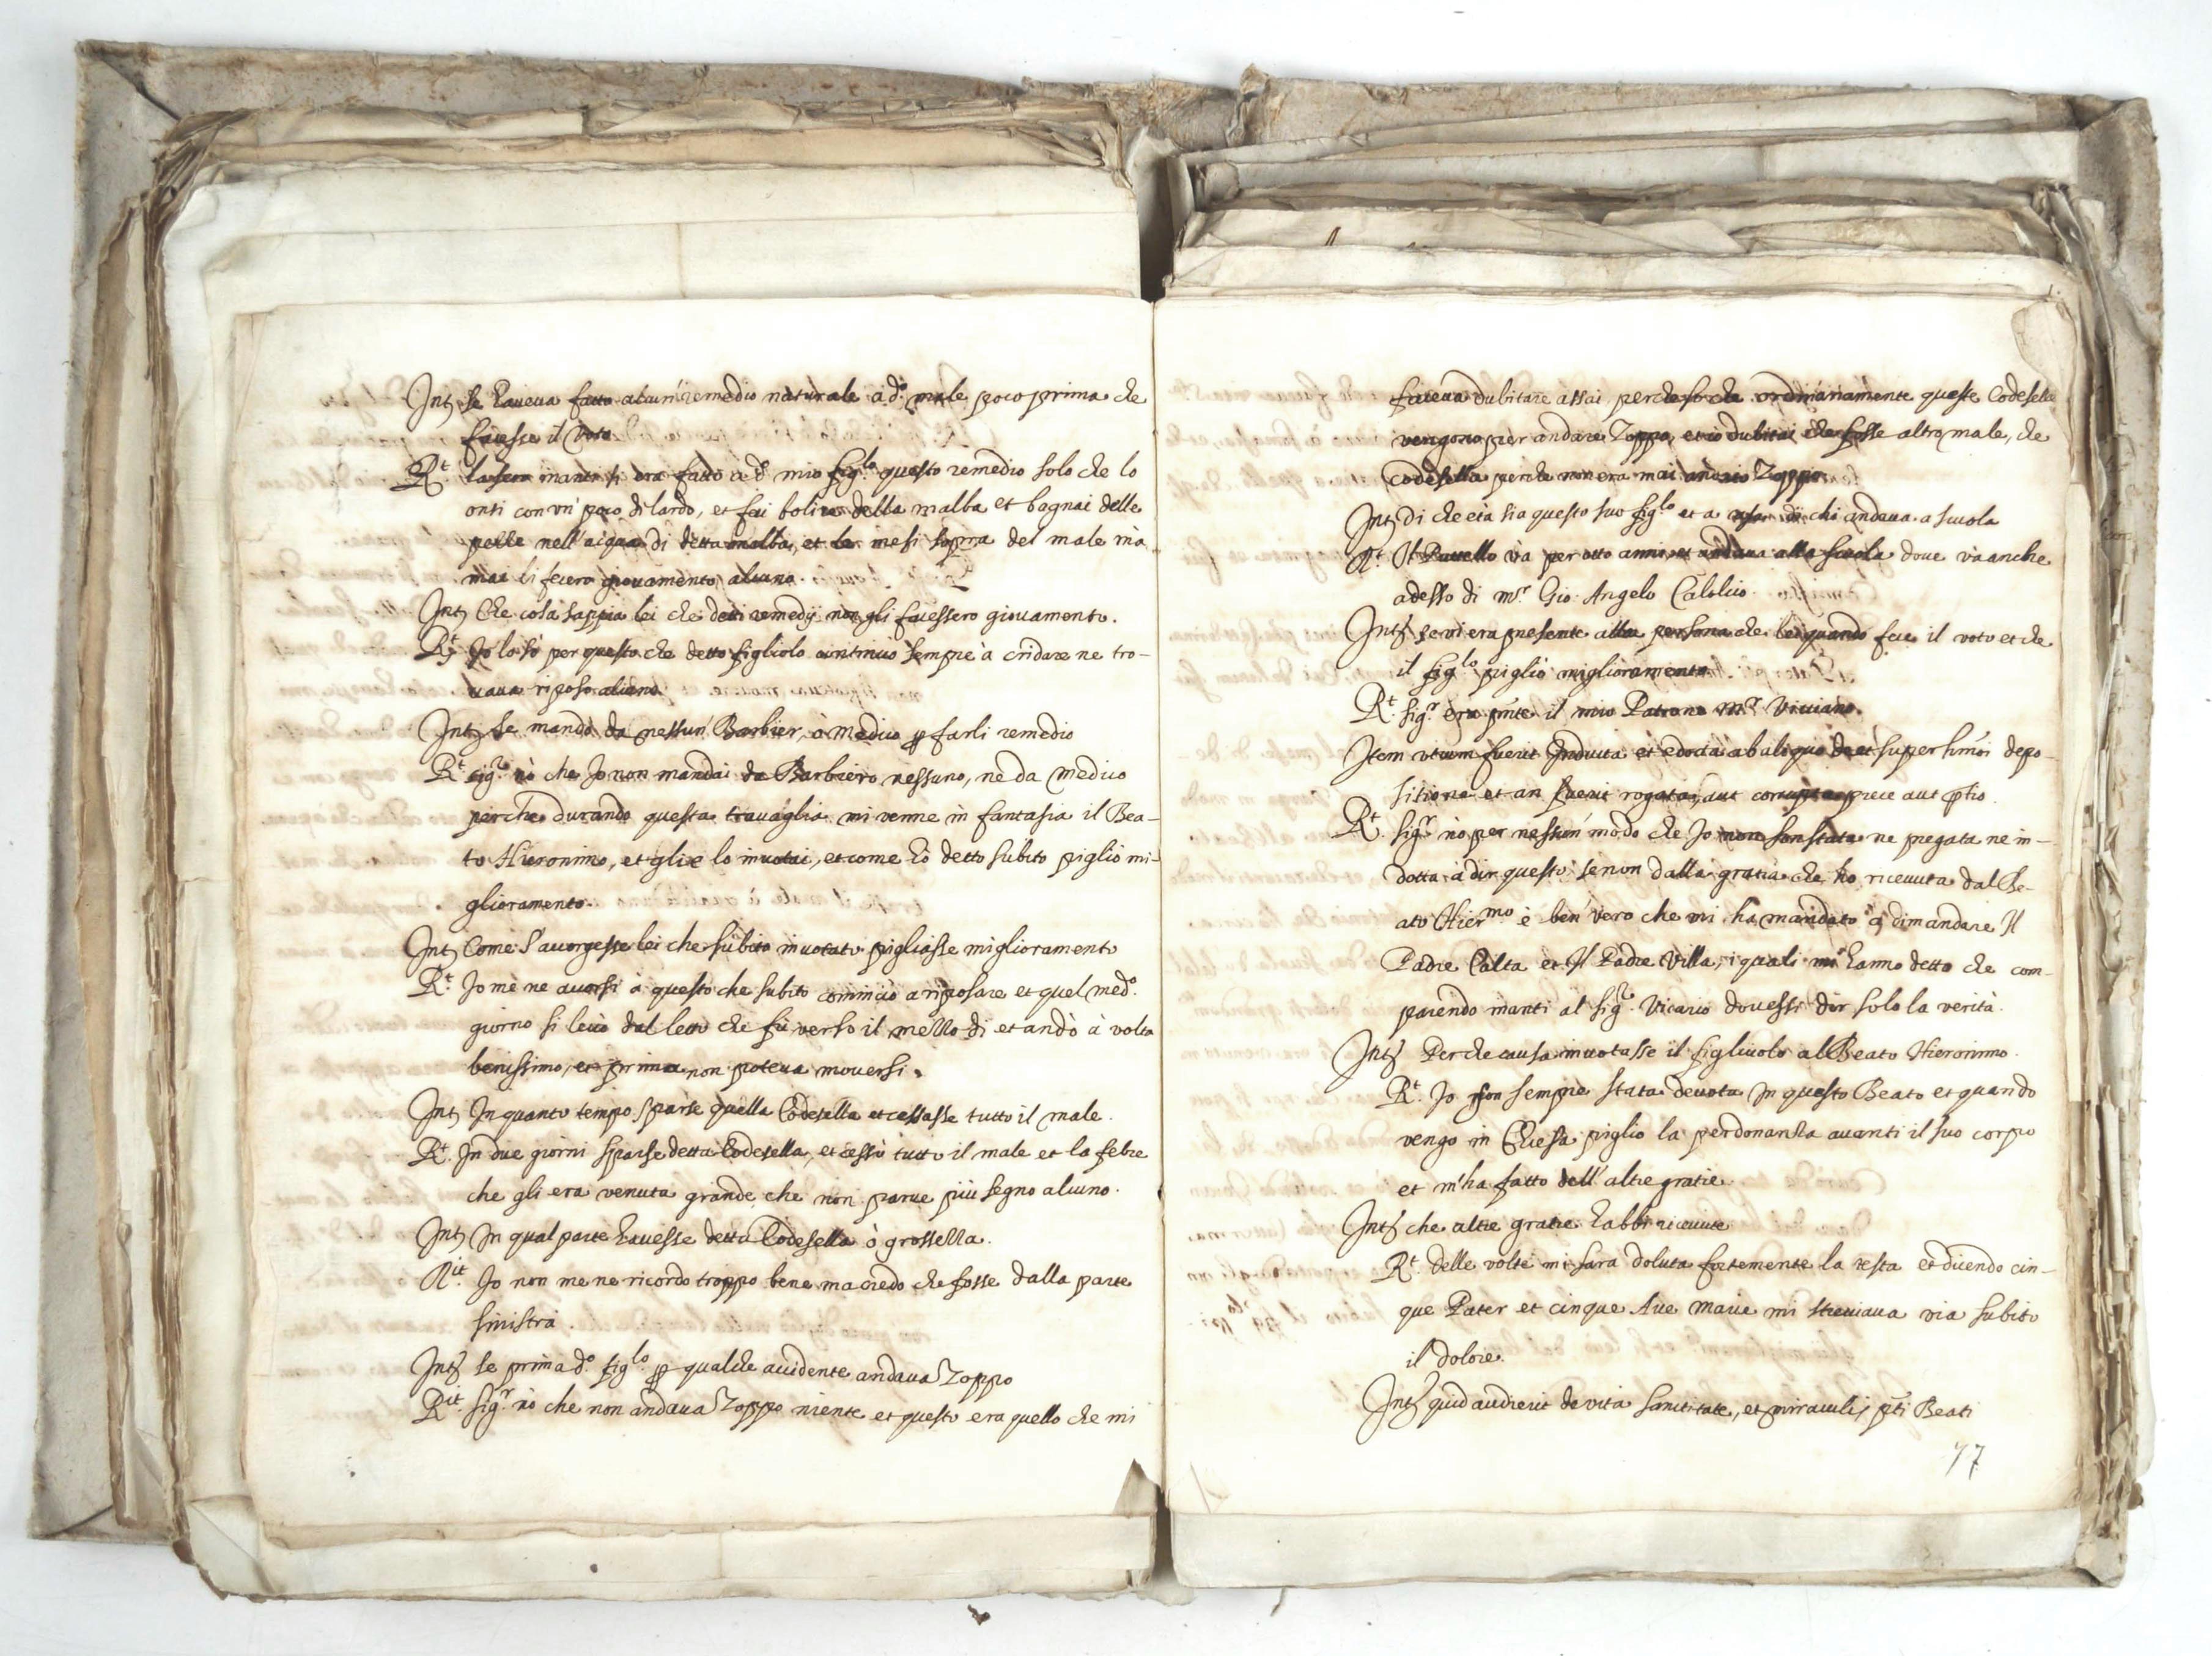 Int. se haueua fatto alcun' remedio naturale à d.º male poco prima che
facesse il voto.
R.t La sera inanti si era fatto a d.º mio fig.lo questo remedio solo che lo
onti con un' poco di lardo, et fei bolire della malba et bagnai delle
pelle nell'acqua di detta malba, et le mesi sopra del male mà
mai li fecero giouamento alcuno.
Int. Che cosa sappia lei che detti remedij non gli facessero giouamento.
R.t Jo lo sò per questo che detto figliolo continuò sempre à cridare ne tro-
uaua riposo alcuno
Int. Se mandò da nessun' Barbier, ò Medico p farli remedio
R.t sig.r nò che Jo non mandai da Barbiero nessuno, ne da Medico
perche durando questa trauaglia mi venne in fantasia il Bea-
to Hieronimo, et glie lo inuotai, et come hò detto subito pigliò mi-
glioramento.
Int. Come s'accorgesse lei che subito inuotato pigliasse miglioramento
R.t Jo mè ne accorsi à questo che subito cominciò a riposare et quel med.º
giorno si leuò dal letto che fù verso il mezzo dì et andò à volta
benissimo, et prima non poteua mouersi.
Int. In quanto tempo sparse quella Codesella et cessasse tutto il male.
R.t In due giorni sparse detta Codesella, et cessò tutto il male et la febre
che gli era venuta grande, che non parue più segno alcuno.
Int. In qual parte hauesse detta Codesella ò grossezza.
R.it Jo non me ne ricordo troppo bene ma credo che fosse dalla parte
sinistra.
Int. se prima d.º fig.lo p qualche accidente andaua Zoppo
R.it sig.r nò che non andaua Zoppo niente et questo era quello che mi
faceua dubitare assai perche ordinariamente queste Codeselle
vengono per andare Zoppo, et io dubitai che fosse altro male, che
codesella perche non era mai andato Zoppo.
Int. di che età sia questo suo fig.lo et a chi andaua a scuola
R.t Il Puttello và per otto anni, et andaua alla scuola doue và anche
adesso di m.r Gio: Angelo Calolcio.
Int. se vi era presente altra persona che lei quando fece il voto et che
il fig.lo pigliò miglioramento
R.t sig.r era pnte il mio Patrone M.r Viciano.
Item utrum fuerit Inducta et edocta ab aliquo super hmoi depo-
sitione et an fuerit rogata, aut corrupta prece aut ptio.
R.t sig.r nò per nessun' modo che Jo non son stata ne pregata ne in-
dotta à dir questo se non dalla gratia che ho riceuuta dal Be-
ato Hier.mo è ben' vero che mi ha mandato à dimandare Il
Padre Calta et Il Padre Villa, i quali mi hanno detto che com-
parendo inanti al sig.r Vicario douessi dir solo la verità.
Int. Per che causa inuotasse il figliuolo al Beato Hieronimo.
R.t Jo son sempre stata deuota In questo Beato et quando
vengo in Chiesa piglio la perdonanza auanti il suo corpo
et m'ha fatto dell'altre gratie.
Int. che altre gratie habbi riceuute
R.t delle volte mi sarà doluta fortemente la testa et dicendo cin-
que Pater et cinque Aue Marie mi via subito
il dolore.
Int. quid audierit de vita sanctitate, et miraculis pti Beati
77